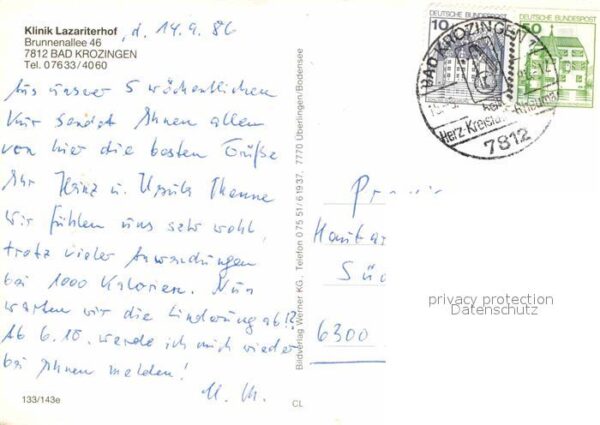 Klinik Lazariterhof, d. 14.9.86
Brunnenallee 46
7812 BAD KROZINGEN
Tel. 07633/4060
Aus unserer 5 wöchentlichen
Kur sendet Ihnen allen
von hier die besten Grüße
Ihr Heinz u. Ursula
Wir fühlen uns sehr wohl
trotz vieler Anwendungen
bei 1000 Kalorien. Nun
warten wir die Linderung ab!?
Ab 6.10. werde ich mich wieder
bei Ihnen melden!
133/143e
CL
Bildverlag Werner KG, Telefon 0 75 51/6 19 37, 7770 Überlingen/Bodensee
10
DEUTSCHE BUNDESPOST
50
DEUTSCHE BUNDESPOST
BAD KROZINGEN 1
Herz-Kreislauf-Rheuma
7812
Süd
6300
privacy protection
Datenschutz